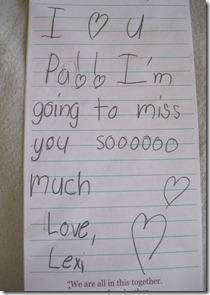 I ♡ u
Pa!! I'm
going to miss
you soooooo
much
Love,
Lexi
"We are all in this together.